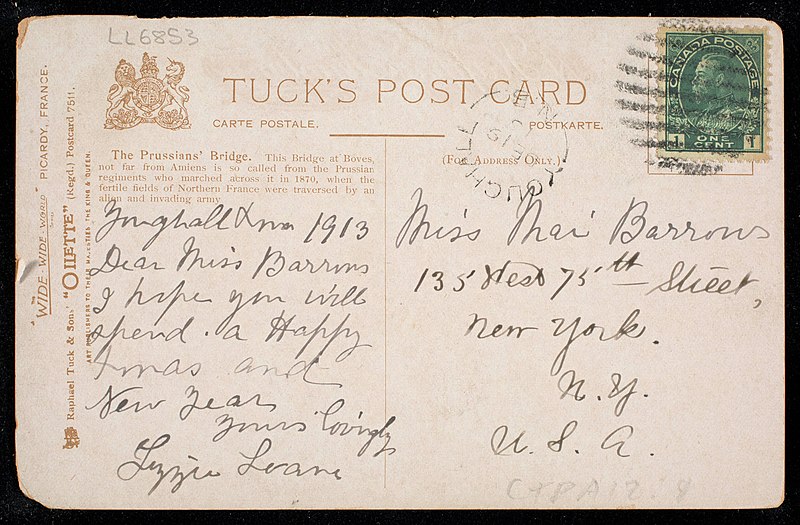 LL6853
TUCK'S POST CARD
CARTE POSTALE.
POSTKARTE.
(FOR ADDRESS ONLY.)
CANADA POSTAGE
1 ONE 1
CENT
YOUGHALL
N.B.
"WIDE-WIDE-WORLD" PICARDY, FRANCE.
Raphael Tuck & Sons' "OILETTE" (Regd.) Postcard 7511.
ART PUBLISHERS TO THEIR MAJESTIES THE KING & QUEEN.
The Prussians' Bridge. This Bridge at Boves,
not far from Amiens is so called from the Prussian
regiments who marched across it in 1870, when the
fertile fields of Northern France were traversed by an
alien and invading army
Youghall Xmas 1913
Dear Miss Barrows
I hope you will
spend. a Happy
Xmas and
New Year
Yours lovingly
Lizzie Loane
Miss Mai Barrows
135 West 75th Street,
New York.
N.Y.
U. S. A.